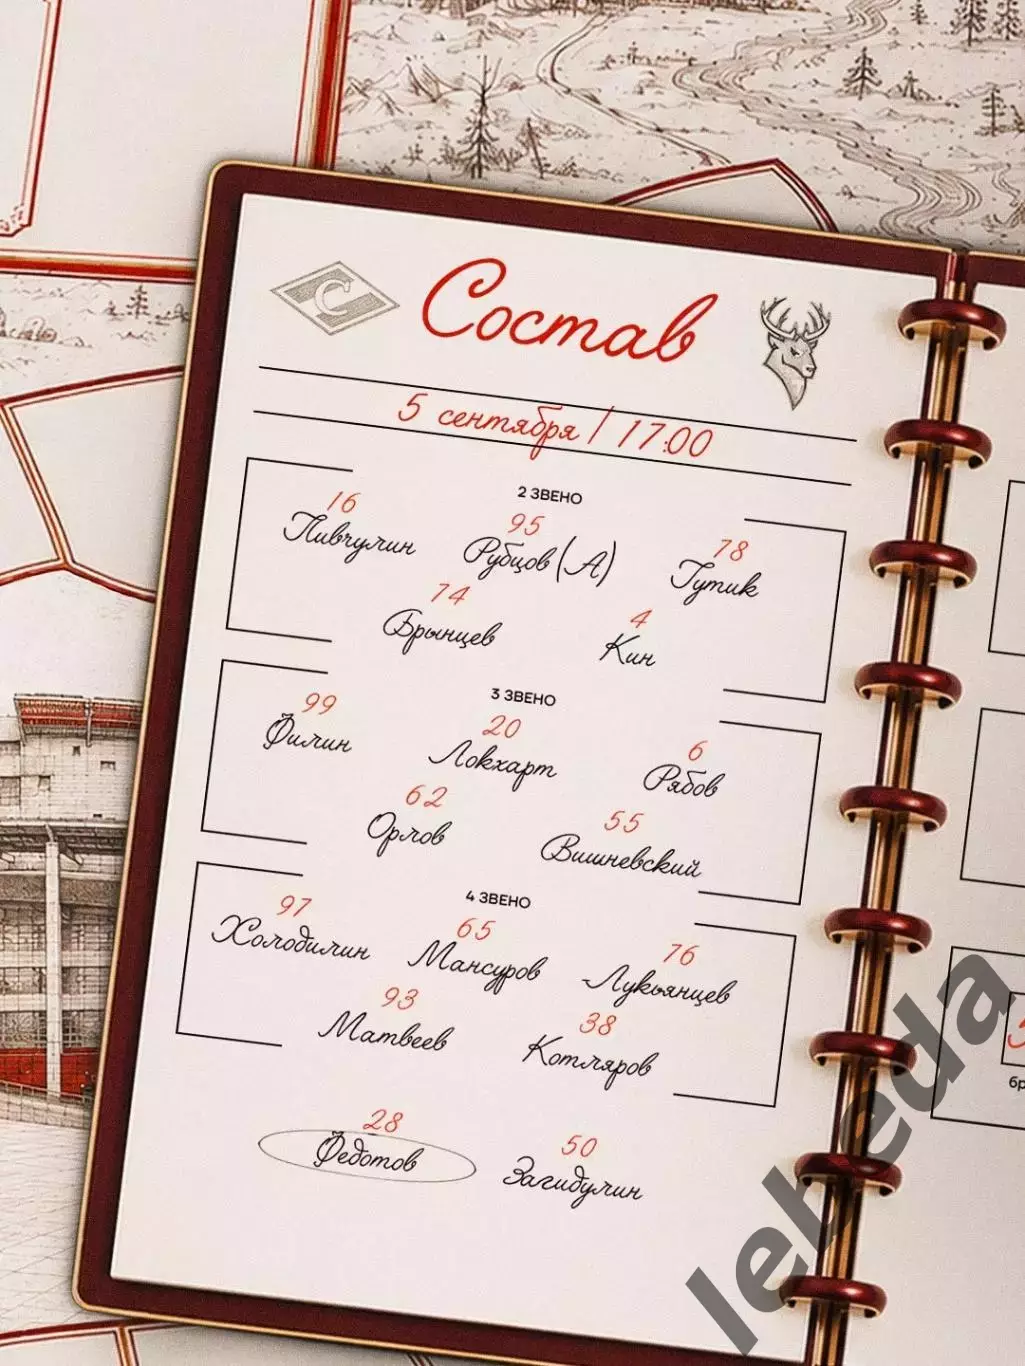 С
Состав
5 сентября / 17:00
2 ЗВЕНО
16 95 78
Пивчулин Рубцов (А) Гутик
74 4
Брынцев Кин
3 ЗВЕНО
99 20 6
Филин Локхарт Рябов
62 55
Орлов Вишневский
4 ЗВЕНО
97 65 76
Холодилин Мансуров Лукьянцев
93 38
Матвеев Котляров
28 50
Федотов Загидулин
lebeda